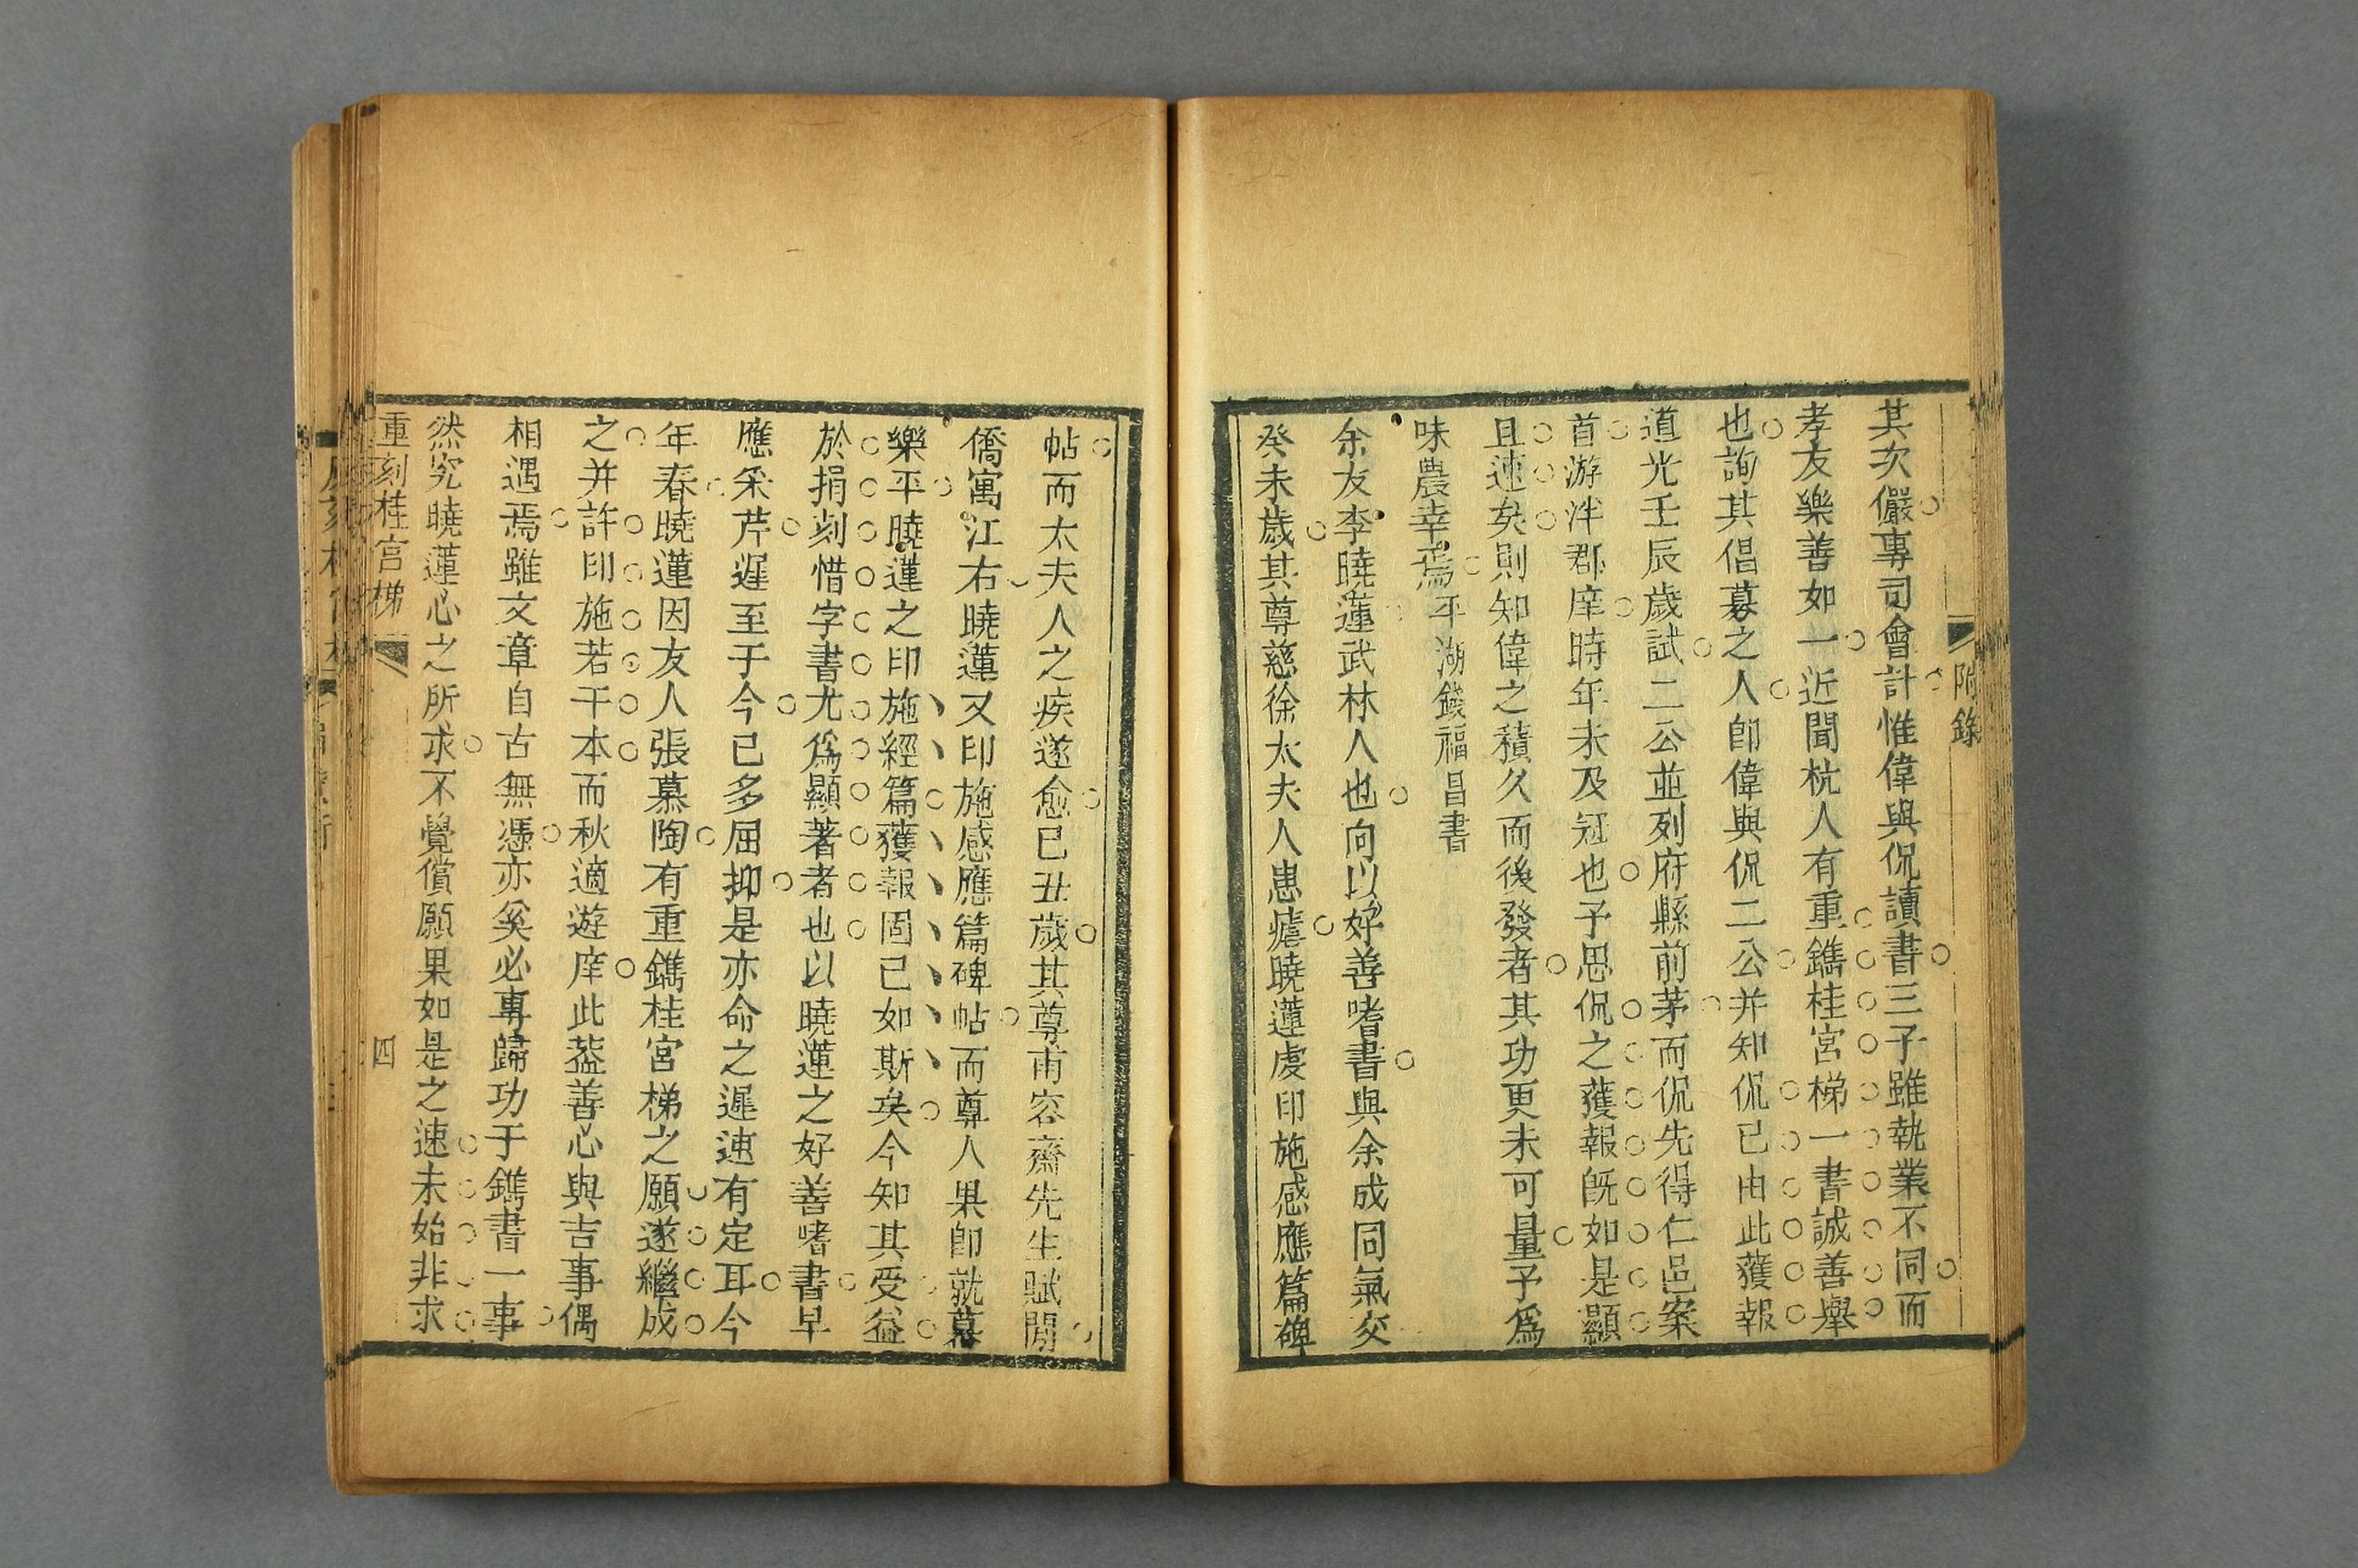 附錄
其次儼專司會計惟偉與侃讀書三子雖執業不同而
孝友樂善如一近聞杭人有重鐫桂宮梯一書誠善舉
也詢其倡募之人卽偉與侃二公并知侃已由此獲報
道光壬辰歲試二公並列府縣前茅而侃先得仁邑案
首游泮郡庠時年未及冠也予思侃之獲報旣如是顯
且速矣則知偉之積久而後發者其功更未可量予爲
味農幸焉平湖錢福昌書
余友李曉蓮武林人也向以好善嗜書與余成同氣交
癸未歲其尊慈徐太夫人患瘧曉蓮虔印施感應篇碑
帖而太夫人之疾遂愈已丑歲其尊甫容齋先生賦閒
僑寓江右曉蓮又印施感應篇碑帖而尊人果卽就幕
樂平曉蓮之印施經篇獲報固已如斯矣今知其受益
於捐刻惜字書尤爲顯著者也以曉蓮之好善嗜書早
應采芹遲至于今已多屈抑是亦命之遲速有定耳今
年春曉蓮因友人張慕陶有重鐫桂宮梯之願遂繼成
之并許印施若干本而秋適遊庠此葢善心與吉事偶
相遇焉雖文章自古無憑亦奚必專歸功于鐫書一事
然究曉蓮心之所求不覺償願果如是之速未始非求
重刻桂宮梯
四